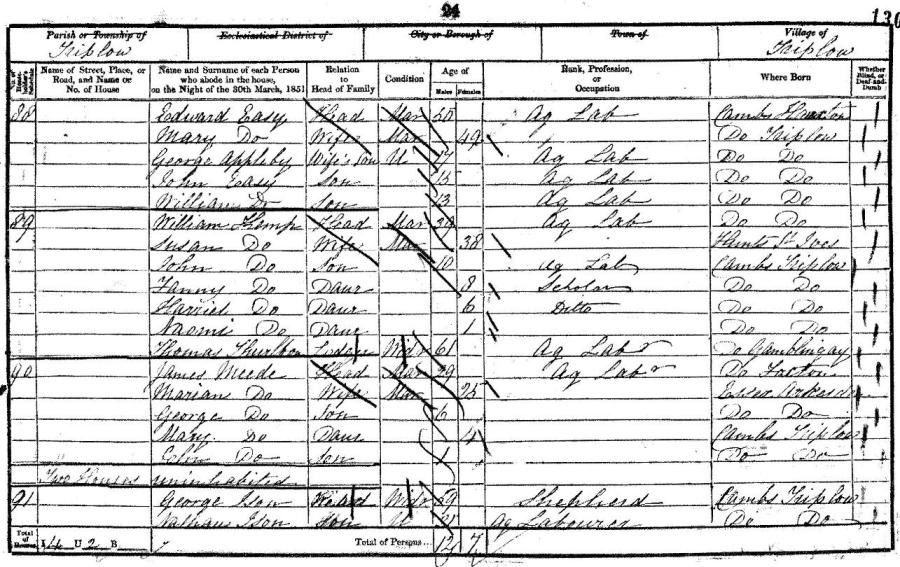 24
130
Parish or Township of Ecclesiastical District of City or Borough of Town of Village of
Triplow Triplow
Name of Street, Place, or Road, and Name or No. of House
Name and Surname of each Person who abode in the house, on the Night of the 30th March, 1851
Relation to Head of Family
Condition
Age of
Males Females
Rank, Profession, or Occupation
Where Born
Whether Blind, or Deaf-and-Dumb
88 Edward Easy Head Mar 50 Ag Lab Cambs Harston
Mary Do Wife Mar 49 Do Triplow
George Appleby Wife's Son U 17 Ag Lab Do Do
John Easy Son 15 Ag Lab Do Do
William Do Son 13 Ag Lab Do Do
89 William Kemp Head Mar 39 Ag Lab Do Do
Susan Do Wife Mar 38 Hunts St Ives
John Do Son 10 Ag Lab Cambs Triplow
Fanny Do Daur 8 Scholar Do Do
Harriet Do Daur 6 Ditto Do Do
Naomi Do Daur 1 Do Do
Thomas Lodger Widr 61 Ag Labr Do Gamblingay
90 James Meede Head Mar 29 Ag Labr Do
Marian Do Wife Mar 25 Essex
George Do Son 6 Do Do
Mary Do Daur 4 Cambs Triplow
Do Son 1 Do Do
Two Houses uninhabited
91 George Ison Head Widr Shepherd Cambs Triplow
Nathan Ison Son U 21 Ag Labourer Do Do
Total of Houses I 4 U 2 B Total of Persons... 12 7